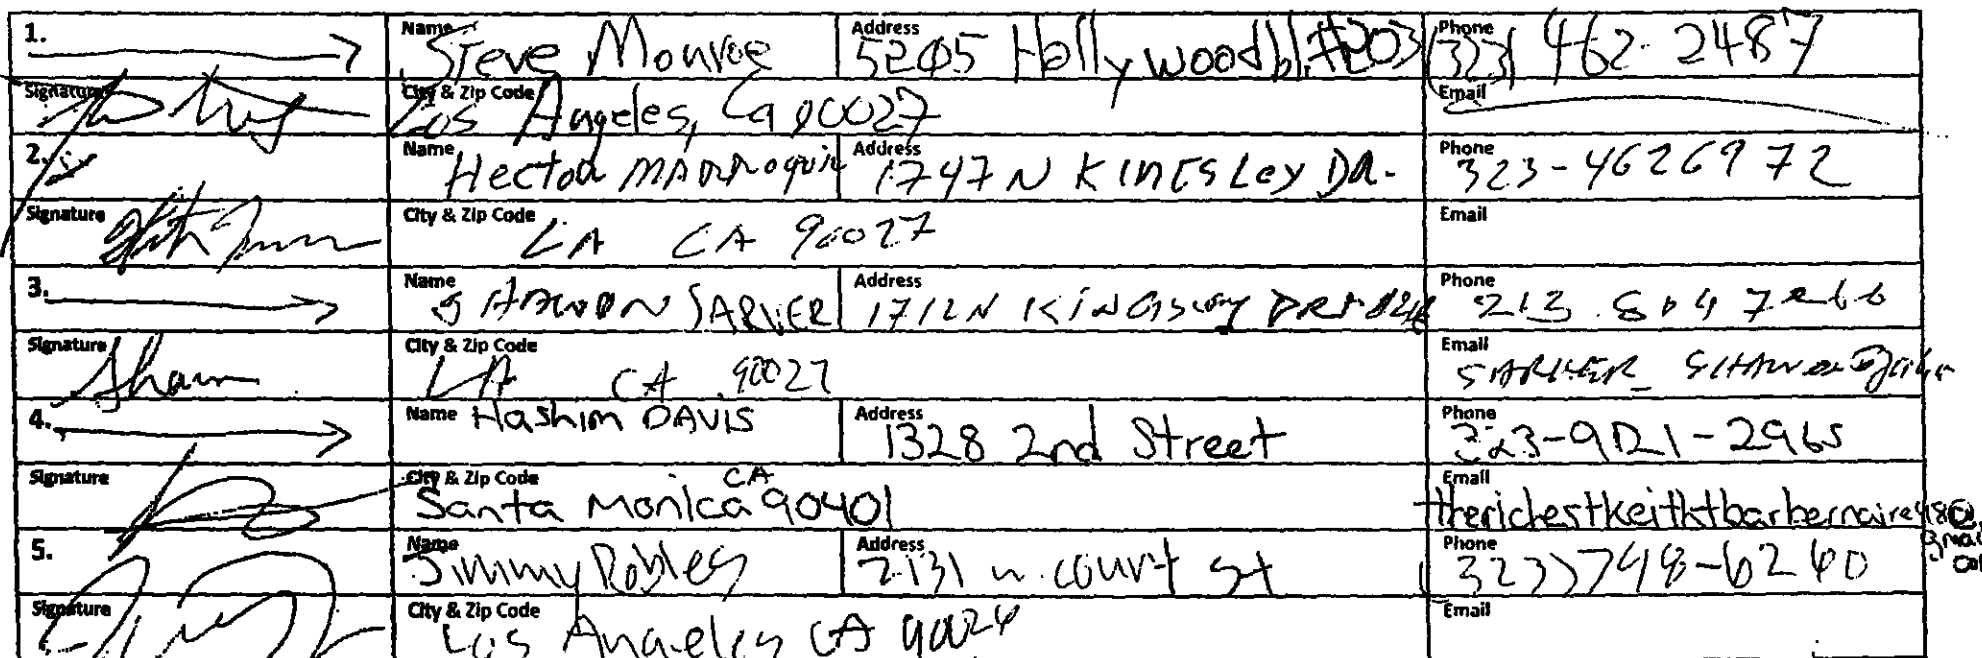 1. Name Steve Monroe Address 5205 Hollywood bl. #203 Phone (323) 462-2487
Signature City & Zip Code Los Angeles, Ca 90027 Email
2. Name Hector MARROquin Address 1747 N KINGSLEy DR. Phone 323-4626972
Signature City & Zip Code LA CA 90027 Email
3. Name SHAWDN SARVER Address 1712 N KiNGSLEY DR Phone 213
Signature Shawn City & Zip Code LA CA 90027 Email
4. Name Hashim DAVIS Address 1328 2nd Street Phone 323-921-2965
Signature City & Zip Code Santa Monica CA 90401 Email
5. Name Jimmy Robles Address 2131 w. court st Phone (323) 748-6240
Signature City & Zip Code Los Angeles CA 90026 Email